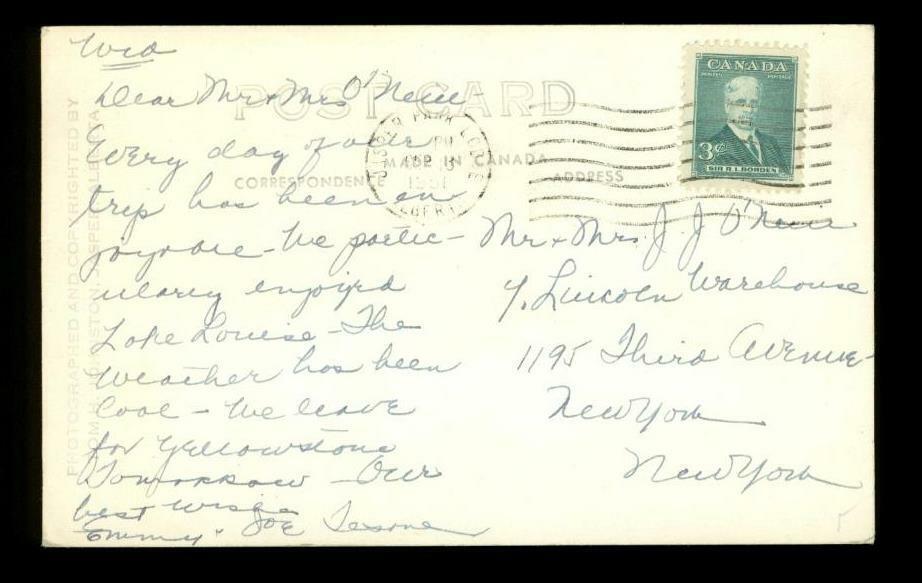 Wed
Dear Mr + Mrs O'Neill -
Every day of our
trip has been en
joyable - We partic -
ularly enjoyed
Lake Louise - The
Weather has been
Cool - We leave
for Yellowstone
Tomorrow - Our
best wishes
Emmy + Joe
POST CARD
MADE IN CANADA
CORRESPONDENCE
ADDRESS
JASPER PARK LODGE
PM
1951
ALBERTA
CANADA
POSTES POSTAGE
3¢
SIR R.L. BORDEN
Mr + Mrs. J. J O'Neill
% Lincoln Warehouse
1195 Third Avenue -
New York
New York
PHOTOGRAPHED AND COPYRIGHTED BY
JASPER, ALBERTA